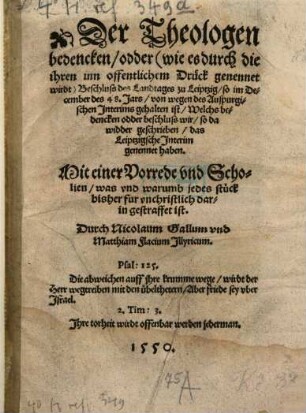 4° H. ref. 349a
Der Theologen
bedencken/ odder (wie es durch die
ihren inn offentlichem Druck genennet
wirdt) Beschluss des Landtages zu Leiptzig/ so im De-
cember des 48. Jars/ von wegen des Auspurgi-
schen Interims gehalten ist/ Welchs be-
dencken odder beschluss wir/ so da
widder geschrieben/ das
Leiptzigsche Interim
genennet haben.
Mit einer Vorrede vnd Scho-
lien/ was vnd warumb jedes stück
bisher fur vnchristlich dar-
in gestraffet ist.
Durch Nicolaum Gallum vnd
Matthiam Flacium Illyricum.
Psal: 125.
Die abweichen auff jhre krumme wege/ wirdt der
Herr wegtreiben mit den übelthetern/ Aber friede sey vber
Israel.
2. Tim: 3.
Ihre torheit wirdt offenbar werden jederman.
1550.
75A